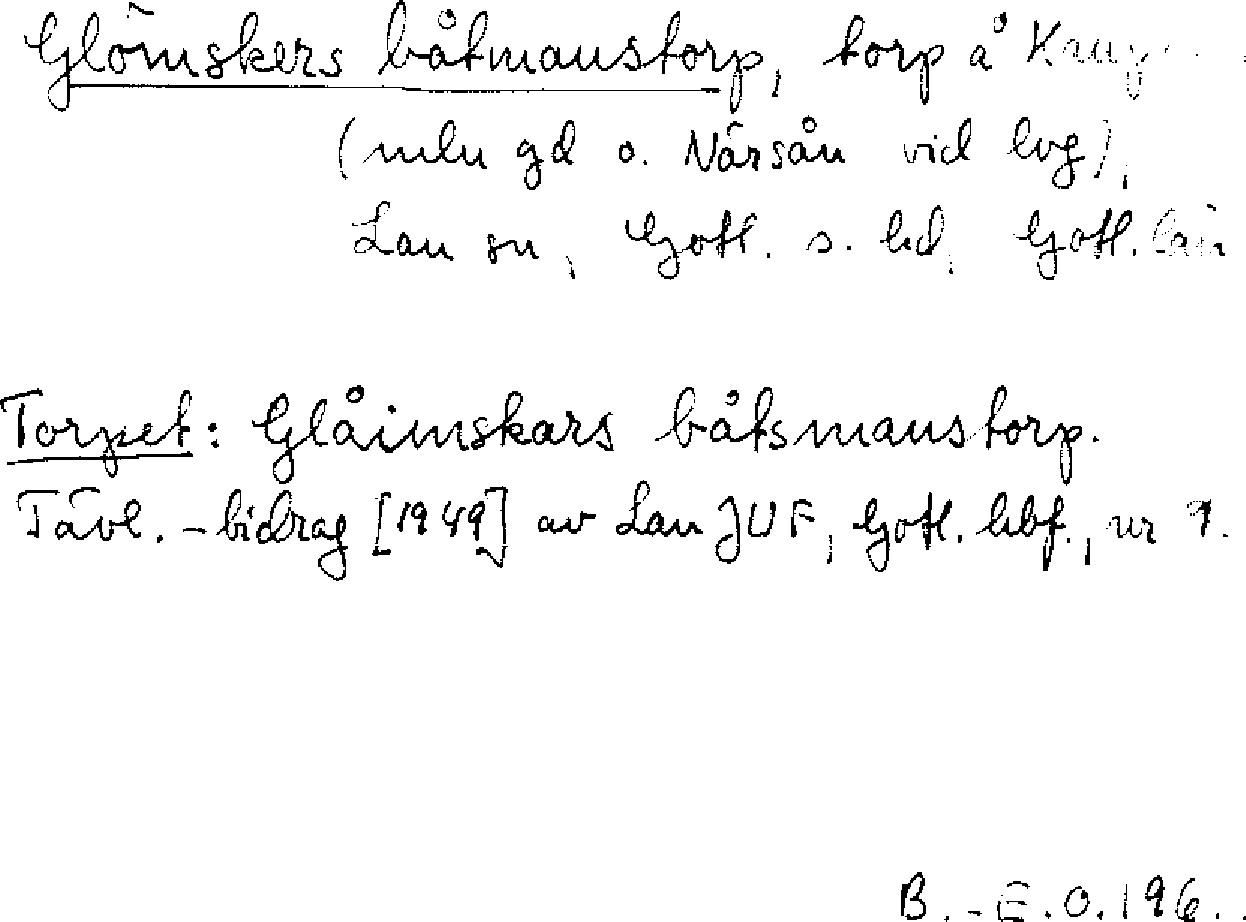 Glömskers båtmanstorp, torp å
(mln gd o. Närsån vid lvg),
Lau sn, Gotl. s. hd, Gotl. län
Torpet: Glåimskars båtsmanstorp.
Tävl.-bidrag [1949] av Lau JUF, Gotl. hbf., nr 9.
B.-E.O. 196